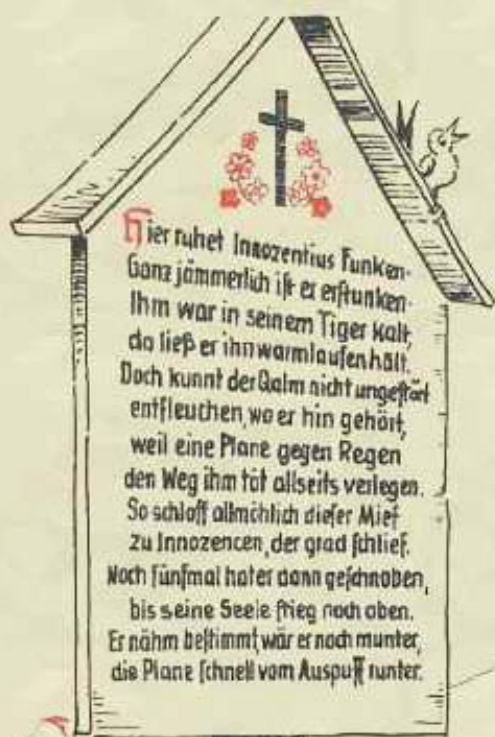 Hier ruhet Innozentius Funken.
Ganz jämmerlich iſt er erſtunken.
Ihm war in seinem Tiger kalt,
da ließ er ihn warmlaufen halt.
Doch kunnt der Qalm nicht ungeſtört
entfleuchen, wo er hin gehört,
weil eine Plane gegen Regen
den Weg ihm tät allseits verlegen.
So schloff allmählich dieſer Mief
zu Innozencen, der grad ſchlief.
Noch fünfmal hat er dann geſchnoben,
bis seine Seele ſtieg nach oben.
Er nähm beſtimmt, wär er noch munter,
die Plane ſchnell vom Auspuff runter.